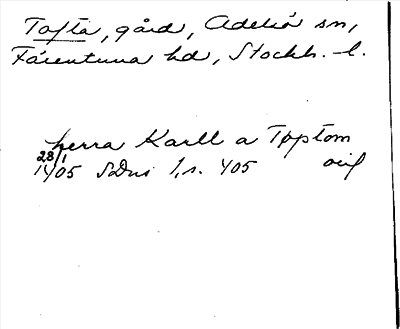 Tofta, gård, Adelsö sn,
Färentuna hd, Stockh. l.
herra Karll a Tpptom
28/1
1405 SDns 1, s. 405 orig